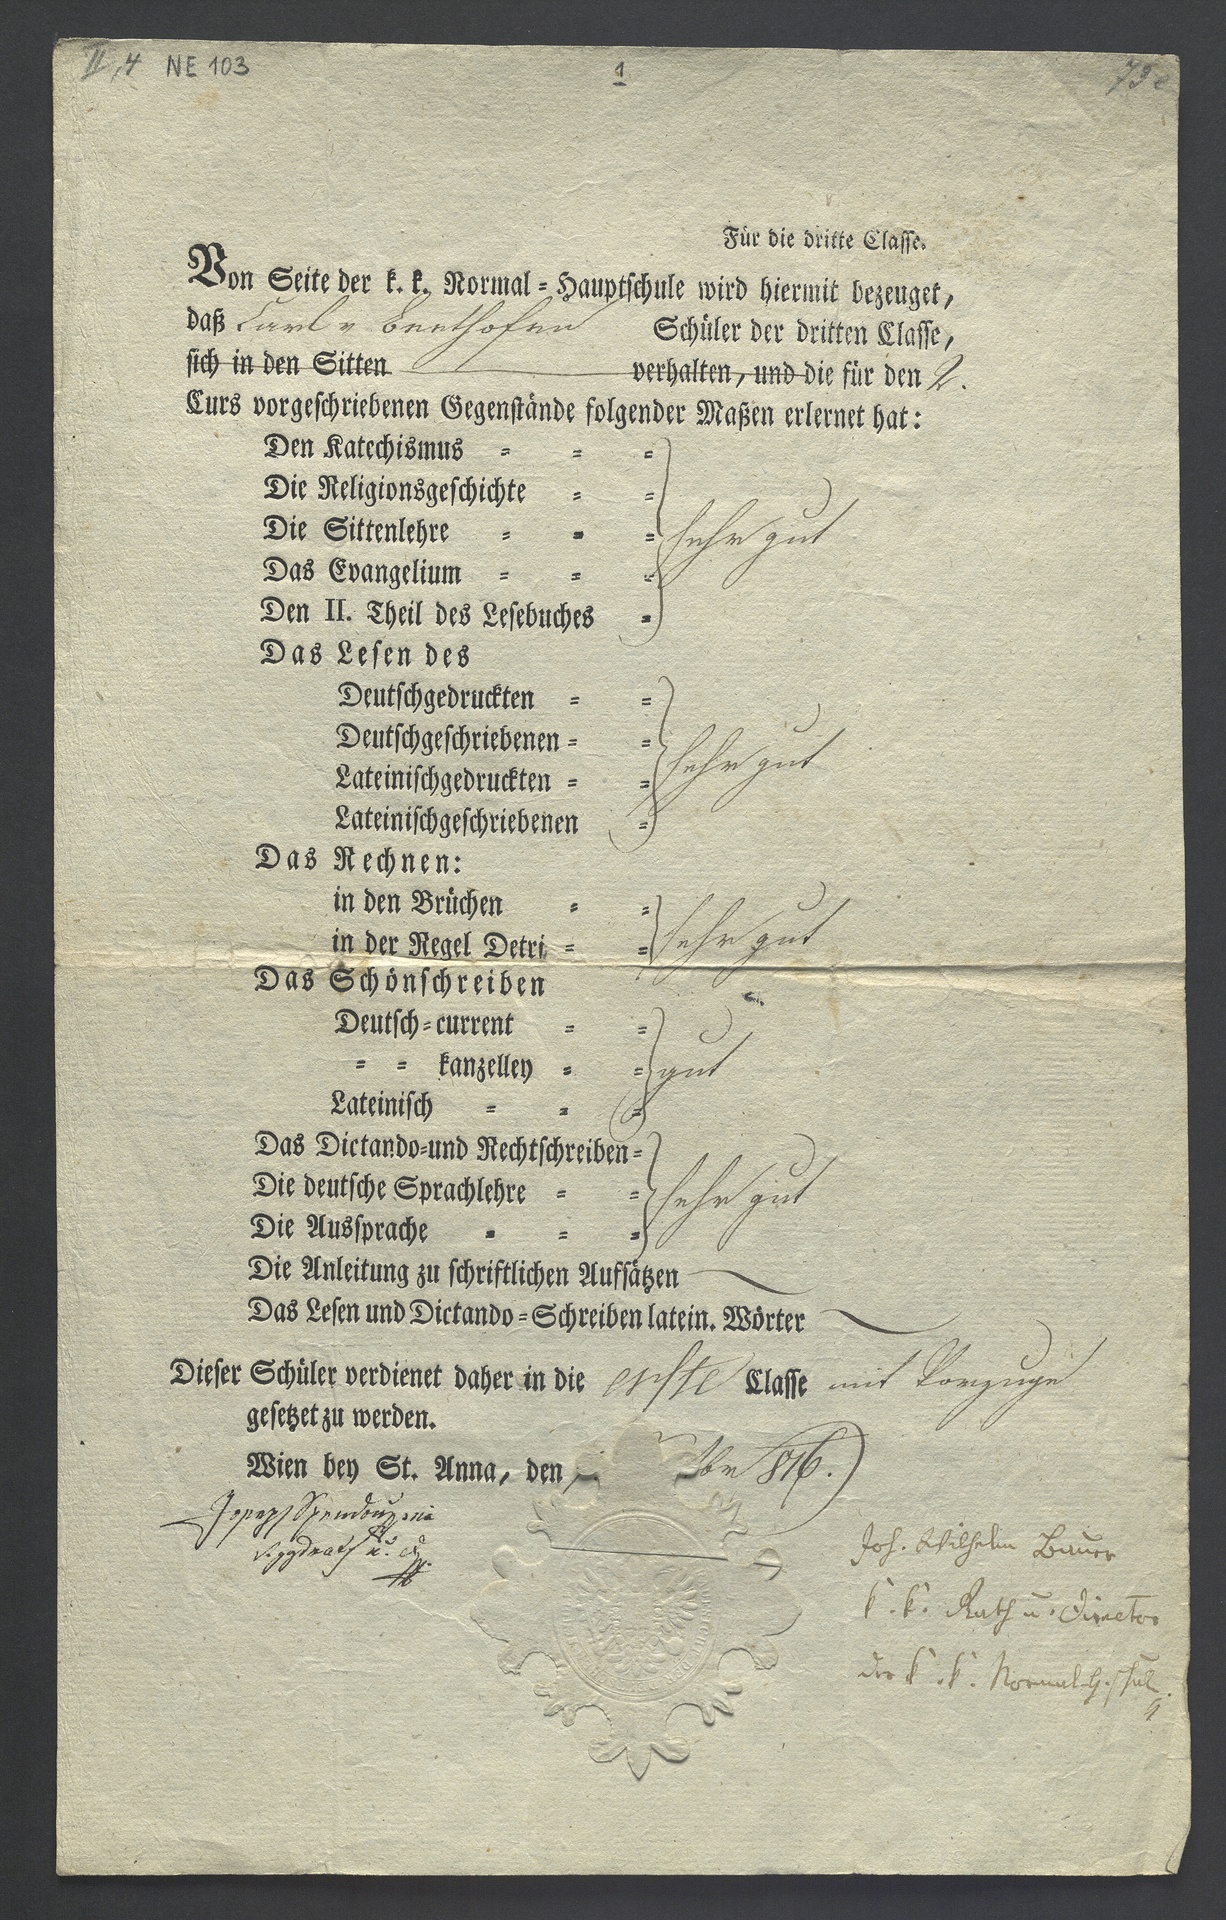 II,4 NE 103 1
Für die dritte Classe.
Von Seite der k. k. Normal = Hauptschule wird hiermit bezeuget,
daß Carl v Beethofen Schüler der dritten Classe,
sich in den Sitten verhalten, und die für den 2.
Curs vorgeschriebenen Gegenstände folgender Maßen erlernet hat:
Den Katechismus = = =
Die Religionsgeschichte = =
Die Sittenlehre = = = sehr gut
Das Evangelium = = =
Den II. Theil des Lesebuches =
Das Lesen des
Deutschgedruckten = =
Deutschgeschriebenen = =
Lateinischgedruckten = = sehr gut
Lateinischgeschriebenen =
Das Rechnen:
in den Brüchen = =
in der Regel Detri = = sehr gut
Das Schönschreiben
Deutsch=current = =
= = kanzelley = = gut
Lateinisch = = =
Das Dictando=und Rechtschreiben=
Die deutsche Sprachlehre = = sehr gut
Die Aussprache = = =
Die Anleitung zu schriftlichen Aufsätzen
Das Lesen und Dictando=Schreiben latein. Wörter
Dieser Schüler verdienet daher in die erste Classe mit Vorzuge
gesetzet zu werden.
Wien bey St. Anna, den 816.
Joseph Spendou
Joh. Wilhelm Bauer
k. k. Rath u. Director
der k. k. Normal H. Schule